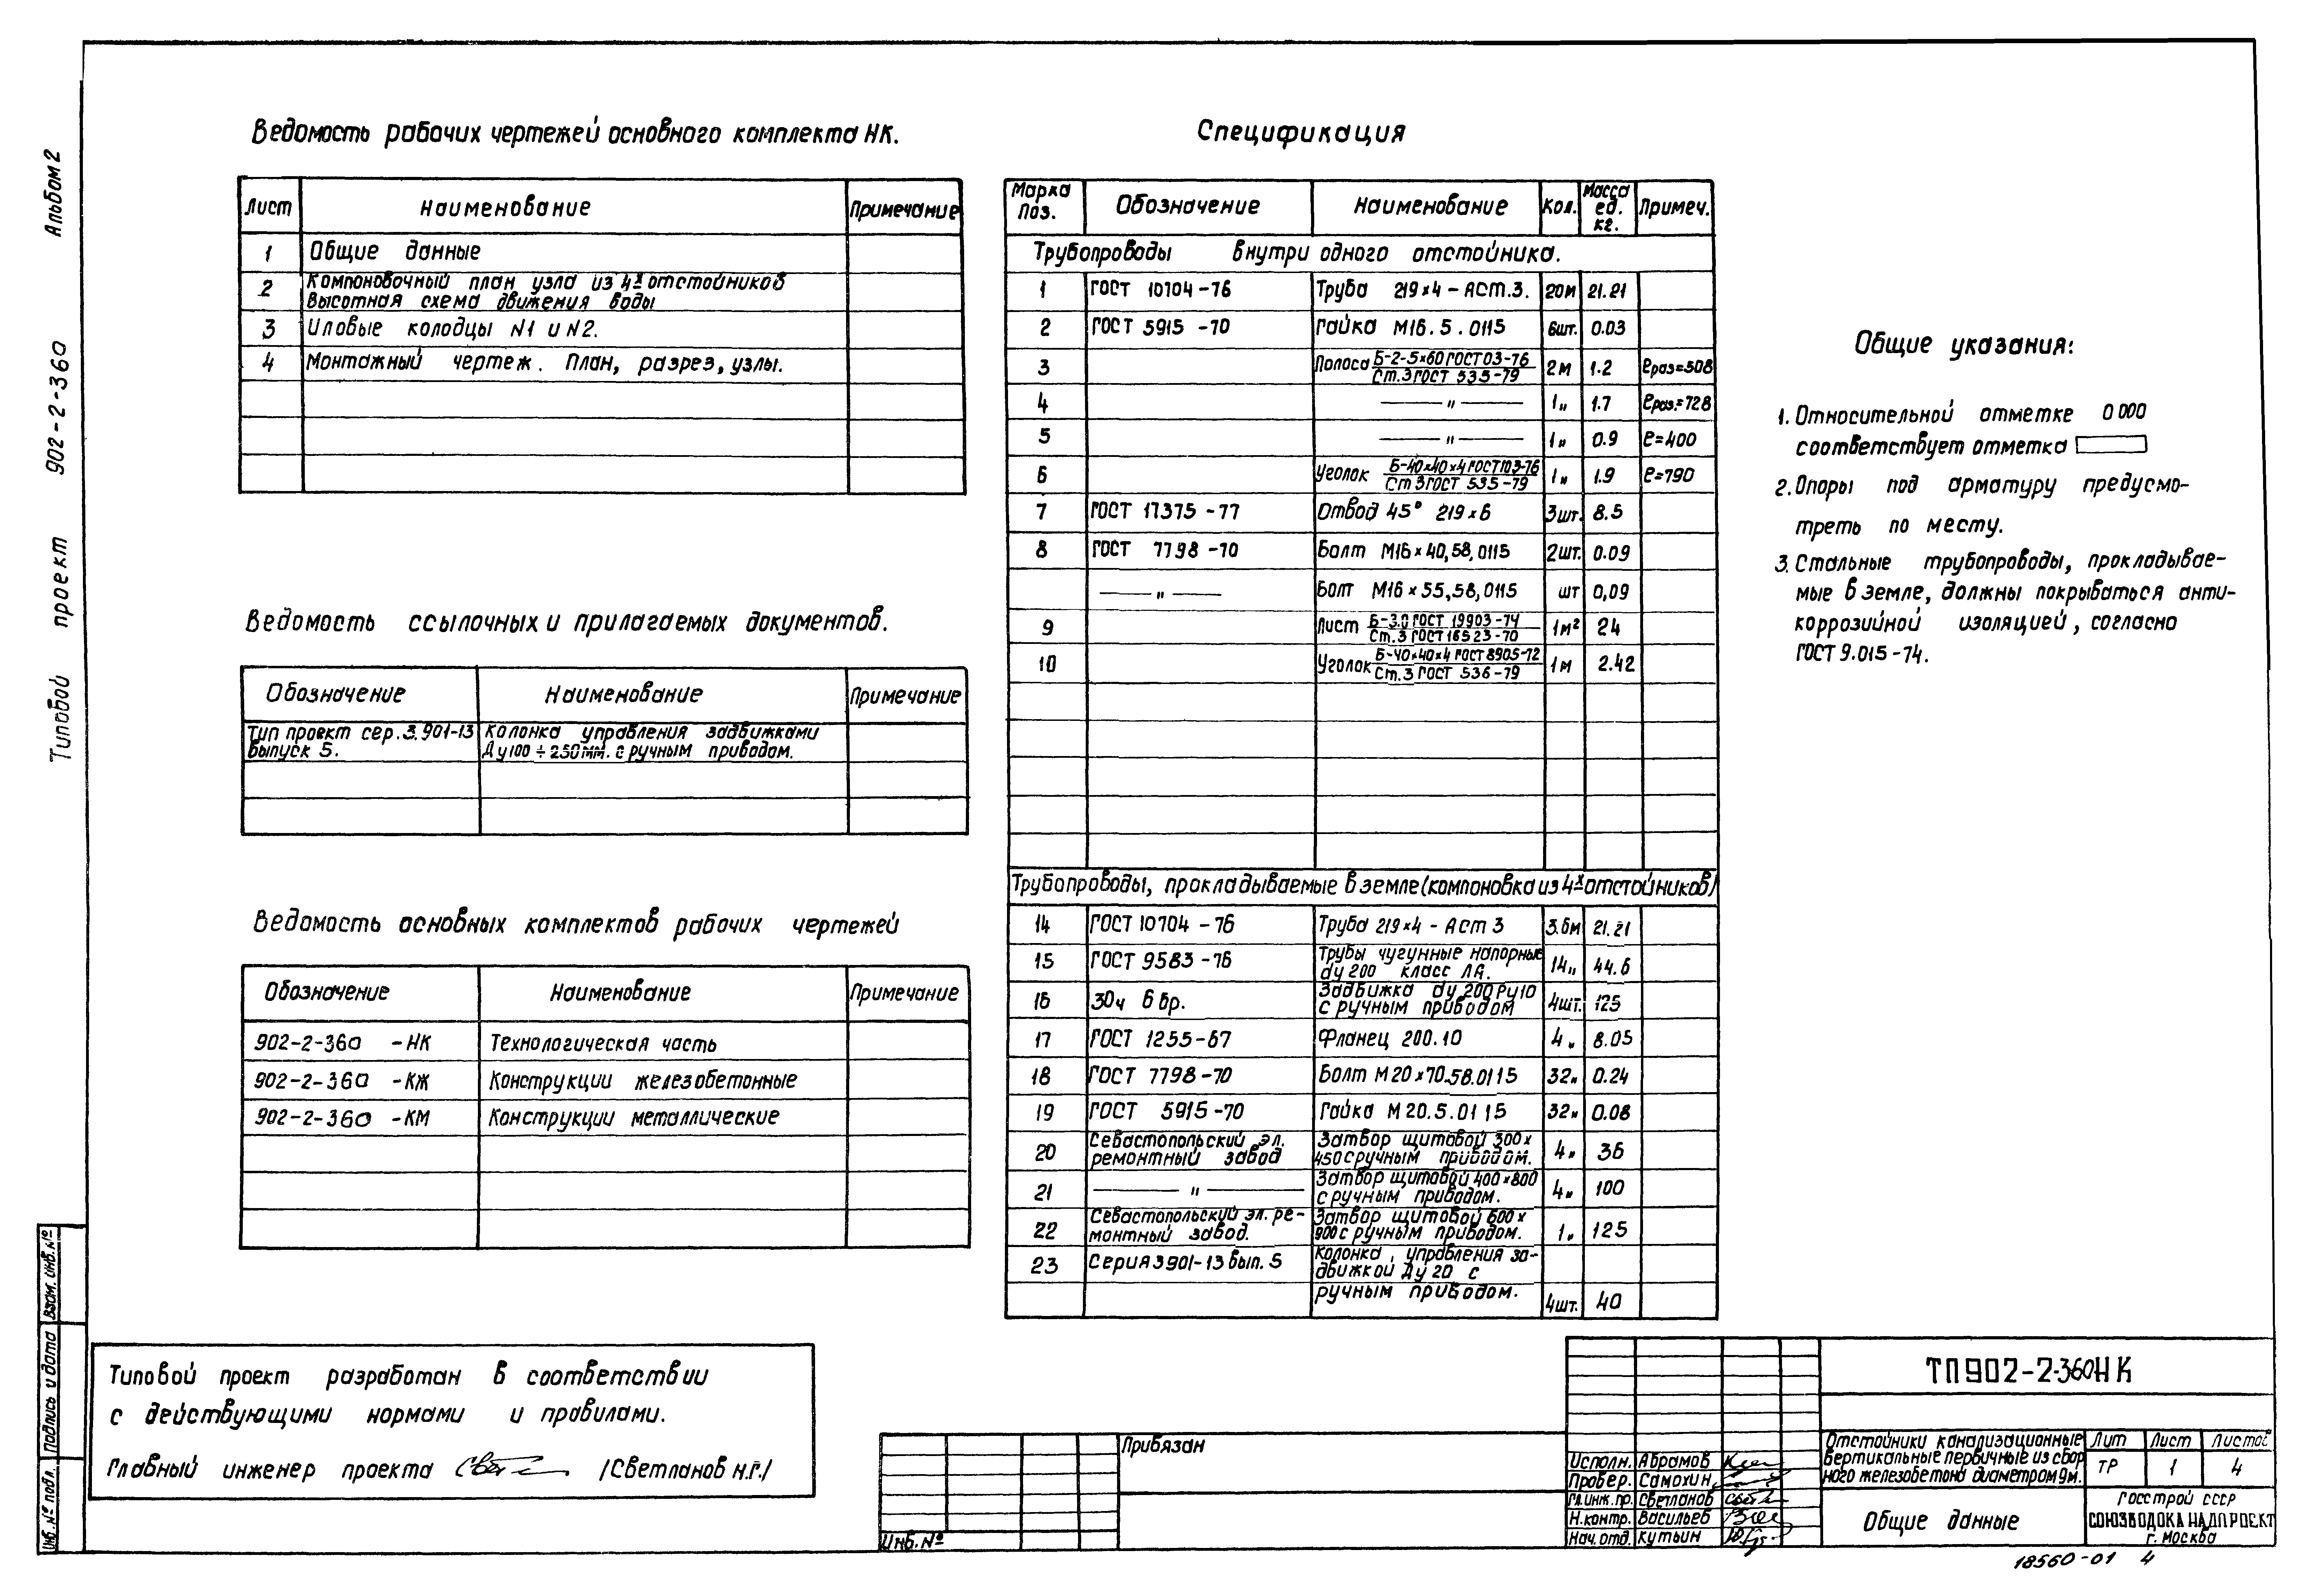 Альбом 2
902-2-360
Типовой проект
Ведомость рабочих чертежей основного комплекта НК.
Лист Наименование Примечание
1 Общие данные
2 Компоновочный план узла из 4х отстойников
Высотная схема движения воды
3 Иловые колодцы N1 и N2.
4 Монтажный чертеж. План, разрез, узлы.
Ведомость ссылочных и прилагаемых документов.
Обозначение Наименование Примечание
Тип проект сер. 3.901-13 Колонка управления задвижками
Выпуск 5. Ду100 ÷ 250мм. с ручным приводом.
Ведомость основных комплектов рабочих чертежей
Обозначение Наименование Примечание
902-2-360 -НК Технологическая часть
902-2-360 -КЖ Конструкции железобетонные
902-2-360 -КМ Конструкции металлические
Типовой проект разработан в соответствии
с действующими нормами и правилами.
Главный инженер проекта /Светланов Н.Г./
Спецификация
Марка Поз. Обозначение Наименование Кол. Масса ед. кг. Примеч.
Трубопроводы внутри одного отстойника.
1 ГОСТ 10704-76 Труба 219×4-Аст.3. 20м 21.21
2 ГОСТ 5915-70 Гайка М16.5.0115 6шт. 0.03
3 Полоса Б-2-5×60 ГОСТ 03-76 2м 1.2 ℓраз=508
Ст.3 ГОСТ 535-79
4 — " — 1" 1.7 ℓраз.=728
5 — " — 1" 0.9 ℓ=400
6 Уголок Б-40×40×4 ГОСТ 103-76 1" 1.9 ℓ=790
Ст 3 ГОСТ 535-79
7 ГОСТ 17375-77 Отвод 45° 219×6 3шт. 8.5
8 ГОСТ 7798-70 Болт М16×40,58,0115 2шт. 0.09
— " — Болт М16×55,58,0115 шт 0,09
9 Лист Б-3.0 ГОСТ 19903-74 1м² 24
Ст.3 ГОСТ 16523-70
10 Уголок Б-40×40×4 ГОСТ 8905-72 1м 2.42
Ст.3 ГОСТ 536-79
Трубопроводы, прокладываемые в земле (компоновка из 4х отстойников)
14 ГОСТ 10704-76 Труба 219×4-Аст 3 3.6м 21.21
15 ГОСТ 9583-76 Трубы чугунные напорные
dу 200 класс ЛА. 14" 44.6
16 30ч 6 бр. Задвижка dу 200 Ру10
с ручным приводом 4шт. 125
17 ГОСТ 1255-67 Фланец 200.10 4" 8.05
18 ГОСТ 7798-70 Болт М20×70.58.0115 32" 0.24
19 ГОСТ 5915-70 Гайка М20.5.0115 32" 0.08
20 Севастопольский эл. Затвор щитовой 300×
ремонтный завод 450 с ручным приводом. 4" 36
21 — " — Затвор щитовой 400×800
с ручным приводом. 4" 100
22 Севастопольский эл. ре- Затвор щитовой 600×
монтный завод. 900 с ручным приводом. 1" 125
23 Серия 3901-13 вып. 5 Колонка управления за-
движкой Ду 20 с
ручным приводом. 4шт. 40
Общие указания:
1. Относительной отметке 0000
соответствует отметка
2. Опоры под арматуру предусмо-
треть по месту.
3. Стальные трубопроводы, прокладывае-
мые в земле, должны покрываться анти-
коррозийной изоляцией, согласно
ГОСТ 9.015-74.
Инв.№ подл. Подпись и дата Взам. инв.№
Прибязан
Инв.№
Исполн. Абрамов
Провер. Самохин
Гл.инж.пр. Светланов
Н.контр. Васильев
Нач.отд. Кутьин
ТП902-2-360НК
Отстойники канализационные
вертикальные первичные из сбор
ного железобетона диаметром 9м.
Лит Лист Листов
ТР 1 4
Общие данные
Госстрой СССР
СОЮЗВОДОКАНАЛПРОЕКТ
г. Москва
18560-01 4